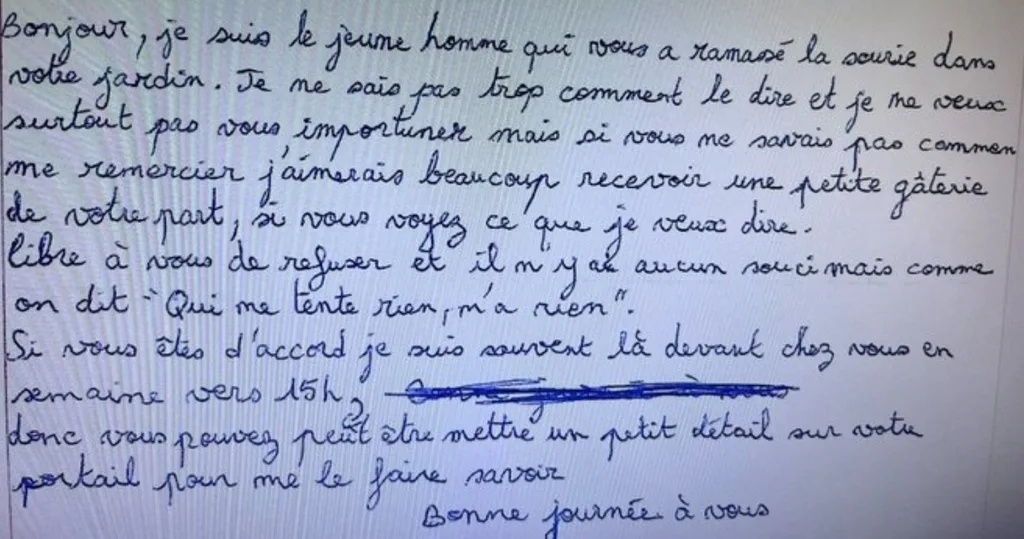 Bonjour, je suis le jeune homme qui vous a ramassé la sourie dans
votre jardin. Je ne sais pas trop comment le dire et je ne veux
surtout pas vous importuner mais si vous ne savais pas commen
me remercier j'aimerais beaucoup recevoir une petite gâterie
de votre part, si vous voyez ce que je veux dire.
libre à vous de refuser et il n'y a aucun souci mais comme
on dit "Qui ne tente rien, n'a rien".
Si vous êtes d'accord je suis souvent là devant chez vous en
semaine vers 15h,
donc vous pouvez peut être mettre un petit détail sur votre
portail pour me le faire savoir
Bonne journée à vous